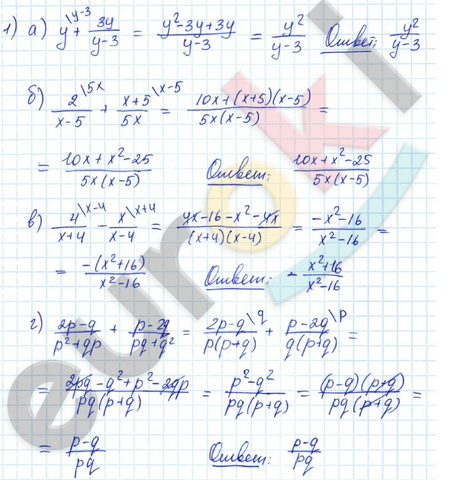 1) а) y\y-3 + 3y/(y-3) = (y²-3y+3y)/(y-3) = y²/(y-3) Ответ: y²/(y-3)
б) 2\5x/(x-5) + (x+5)\x-5/5x = (10x+(x+5)(x-5))/(5x(x-5)) =
= (10x+x²-25)/(5x(x-5)) Ответ: (10x+x²-25)/(5x(x-5))
в) 4\x-4/(x+4) - x\x+4/(x-4) = (4x-16-x²-4x)/((x+4)(x-4)) = (-x²-16)/(x²-16) =
= -(x²+16)/(x²-16) Ответ: - (x²+16)/(x²-16)
г) (2p-q)/(p²+qp) + (p-2q)/(pq+q²) = (2p-q)\q/(p(p+q)) + (p-2q)\p/(q(p+q)) =
= (2pq-q²+p²-2qp)/(pq(p+q)) = (p²-q²)/(pq(p+q)) = ((p-q)(p+q))/(pq(p+q)) =
= (p-q)/pq Ответ: (p-q)/pq
euroki